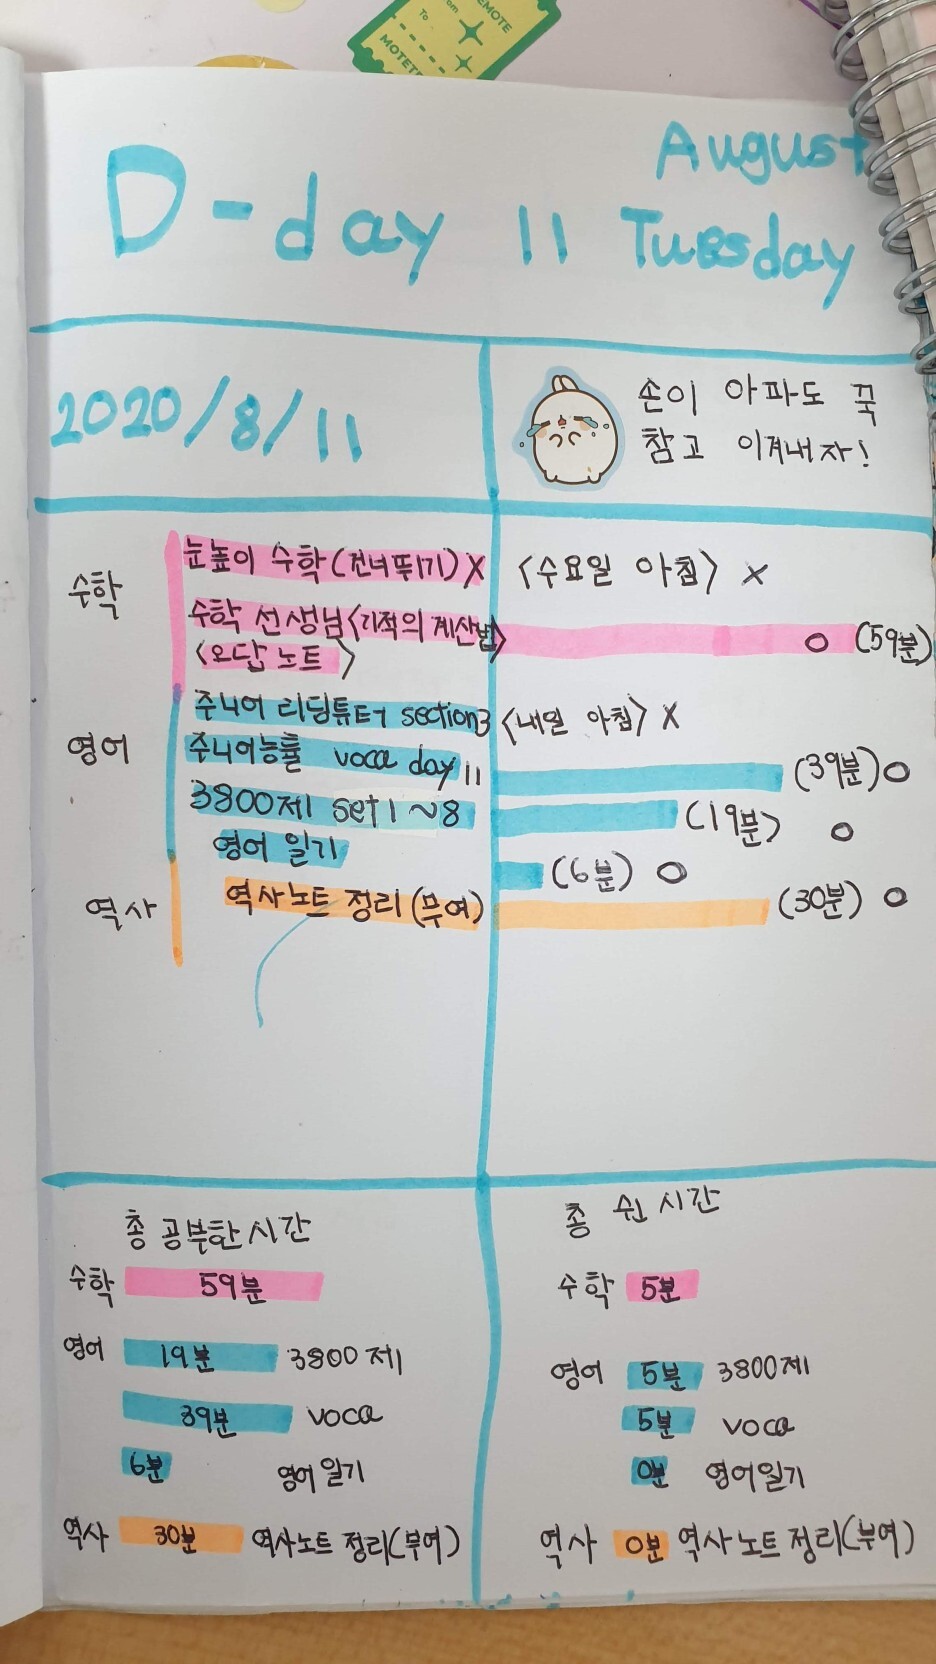 To
From
REMOTE
MOTE
August
D-day 11 Tuesday
2020/8/11
손이 아파도 꾹
참고 이겨내자!
수학
눈높이 수학(건너뛰기)X <수요일 아침> X
수학 선생님<기적의 계산법>
<오답 노트> O (59분)
영어
주니어 리딩튜터 section3 <내일 아침> X
주니어능률 voca day 11 (39분)O
3800제 set 1~8 (19분> O
영어 일기 (6분) O
역사 역사노트 정리(부여) (30분) O
총 공부한 시간
수학 59분
영어 19분 3800제
39분 voca
6분 영어일기
역사 30분 역사노트 정리(부여)
총 쉰 시간
수학 5분
영어 5분 3800제
5분 voca
0분 영어일기
역사 0분 역사노트 정리(부여)